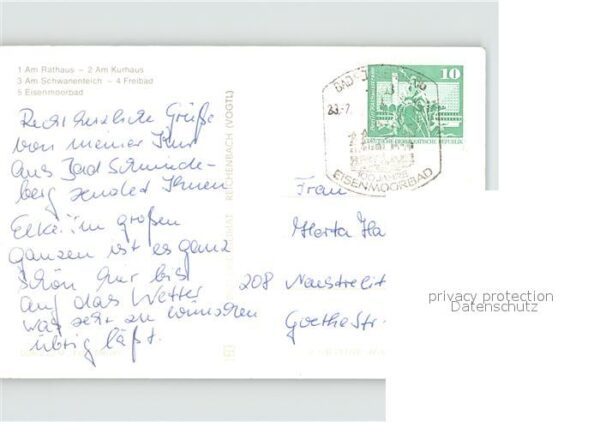 1 Am Rathaus – 2 Am Kurhaus
3 Am Schwanenteich – 4 Freibad
5 Eisenmoorbad
Recht herzliche Grüße
von meiner Kur
aus Bad Schmiede-
berg sendet Ihnen
Elke. Im großen
ganzen ist es ganz
schön nur bis
auf das Wetter
was sehr zu wünschen
übrig läßt.
REICHENBACH (VOGTL)
10
DEUTSCHE DEMOKRATISCHE REPUBLIK
BAD
23.-7.
100 JAHRE
EISENMOORBAD
Frau
Herta Ha
208 Neustrelit
Goethestr.
privacy protection
Datenschutz